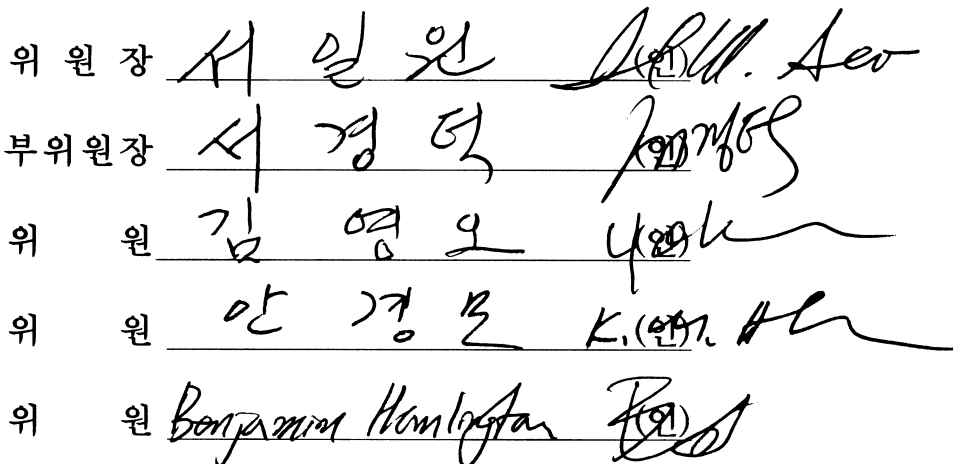 위 원 장 서 일 원 (인) Il Won. Seo
부위원장 서 경 덕 (인)
위 원 김 영 오 (인)
위 원 안 경 모 (인) K.
위 원 Benjamin Hamlington (인)